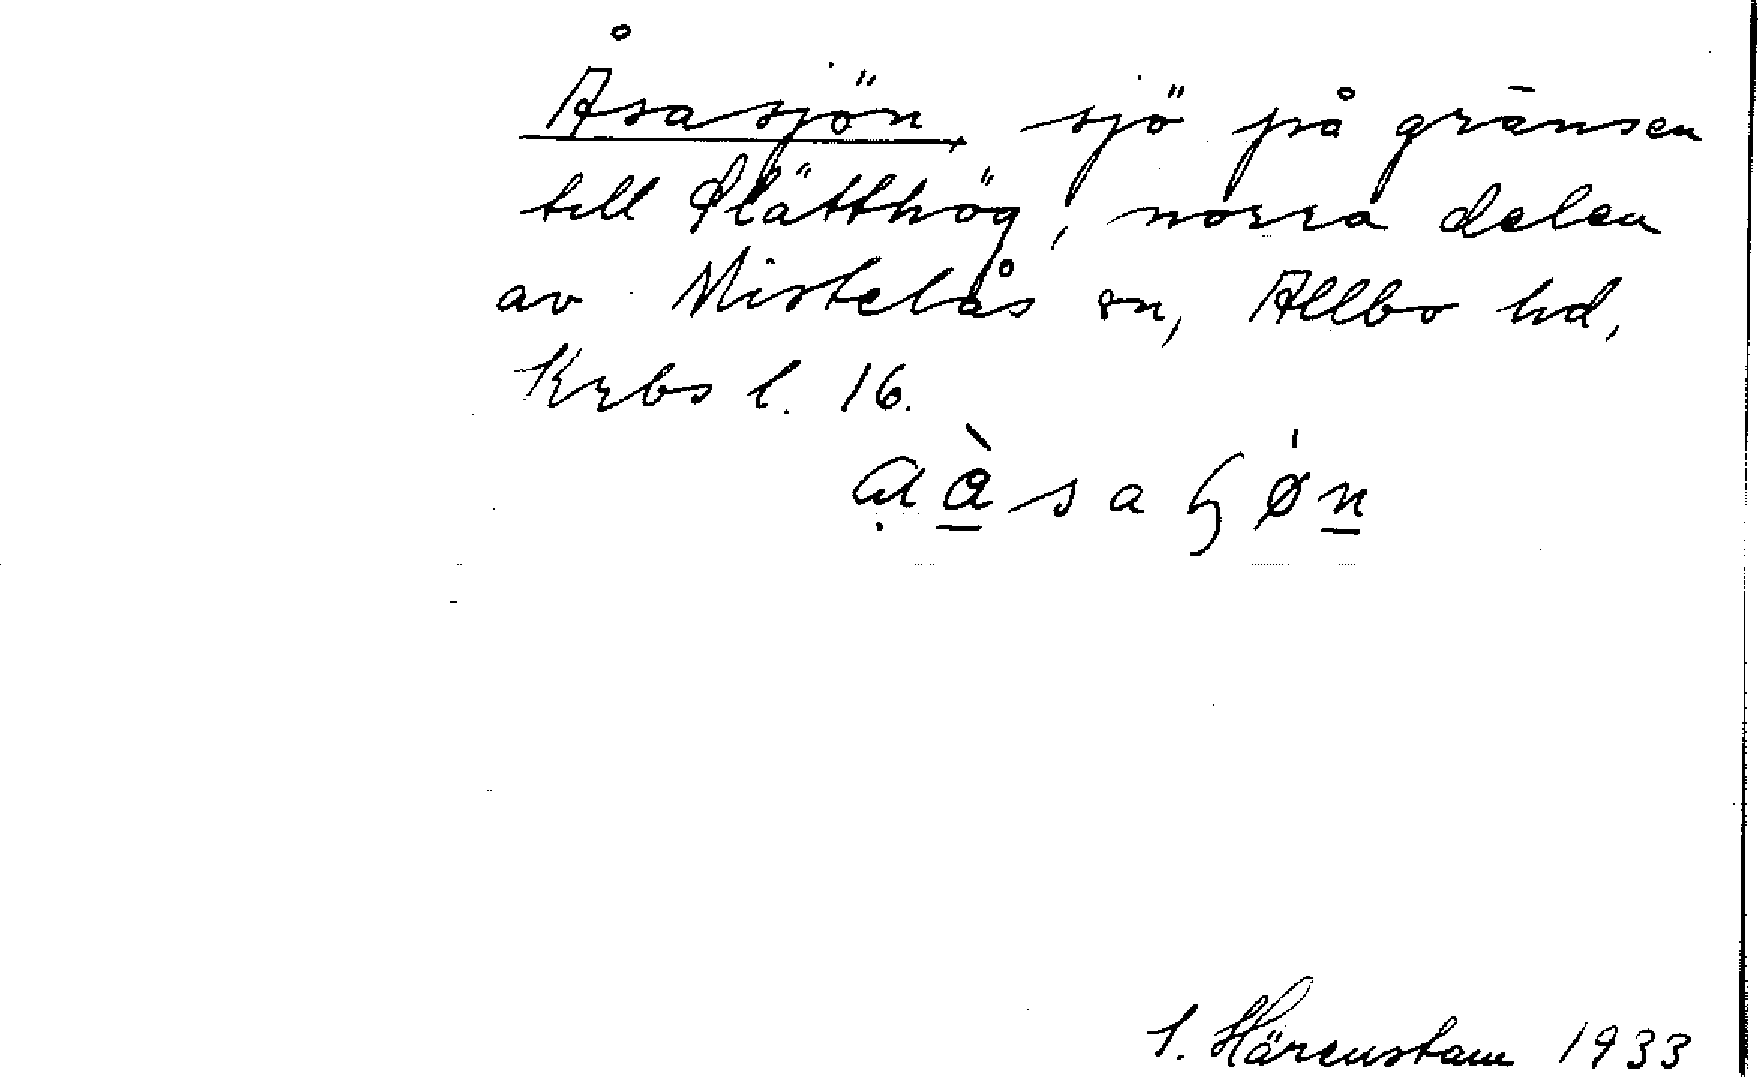 Åsasjön, sjö på gränsen
till Slätthög, norra delen
av Mistelås sn, Allbo hd,
Krbs l. 16.
S. Härenstam 1933